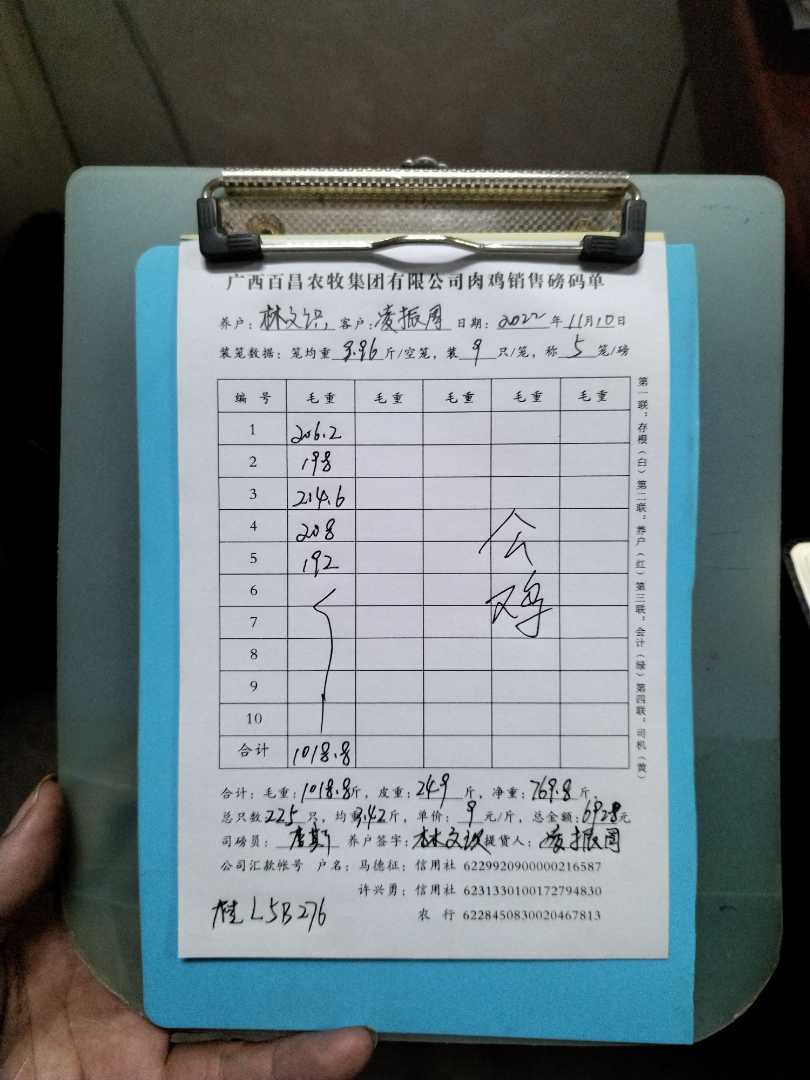 广西百昌农牧集团有限公司肉鸡销售磅码单
养户：林文识 客户：凌振周 日期：2022年11月10日
装笼数据：笼均重9.96斤/空笼，装9只/笼，称5笼/磅
编号 毛重 毛重 毛重 毛重 毛重
1 206.2
2 198
3 214.6
4 208
5 192
6
7
8
9
10
合计 1018.8
公鸡
第一联：存根（白）第二联：养户（红）第三联：会计（绿）第四联：司机（黄）
合计：毛重：1018.8斤，皮重：249斤，净重：769.8斤，
总只数225只，均重3.42斤，单价：9元/斤，总金额：6928元
司磅员： 养户签字：林文 提货人：凌振周
公司汇款帐号 户名：马德征：信用社 6229920900000216587
许兴勇：信用社 6231330100172794830
农行 6228450830020467813
桂L5B276